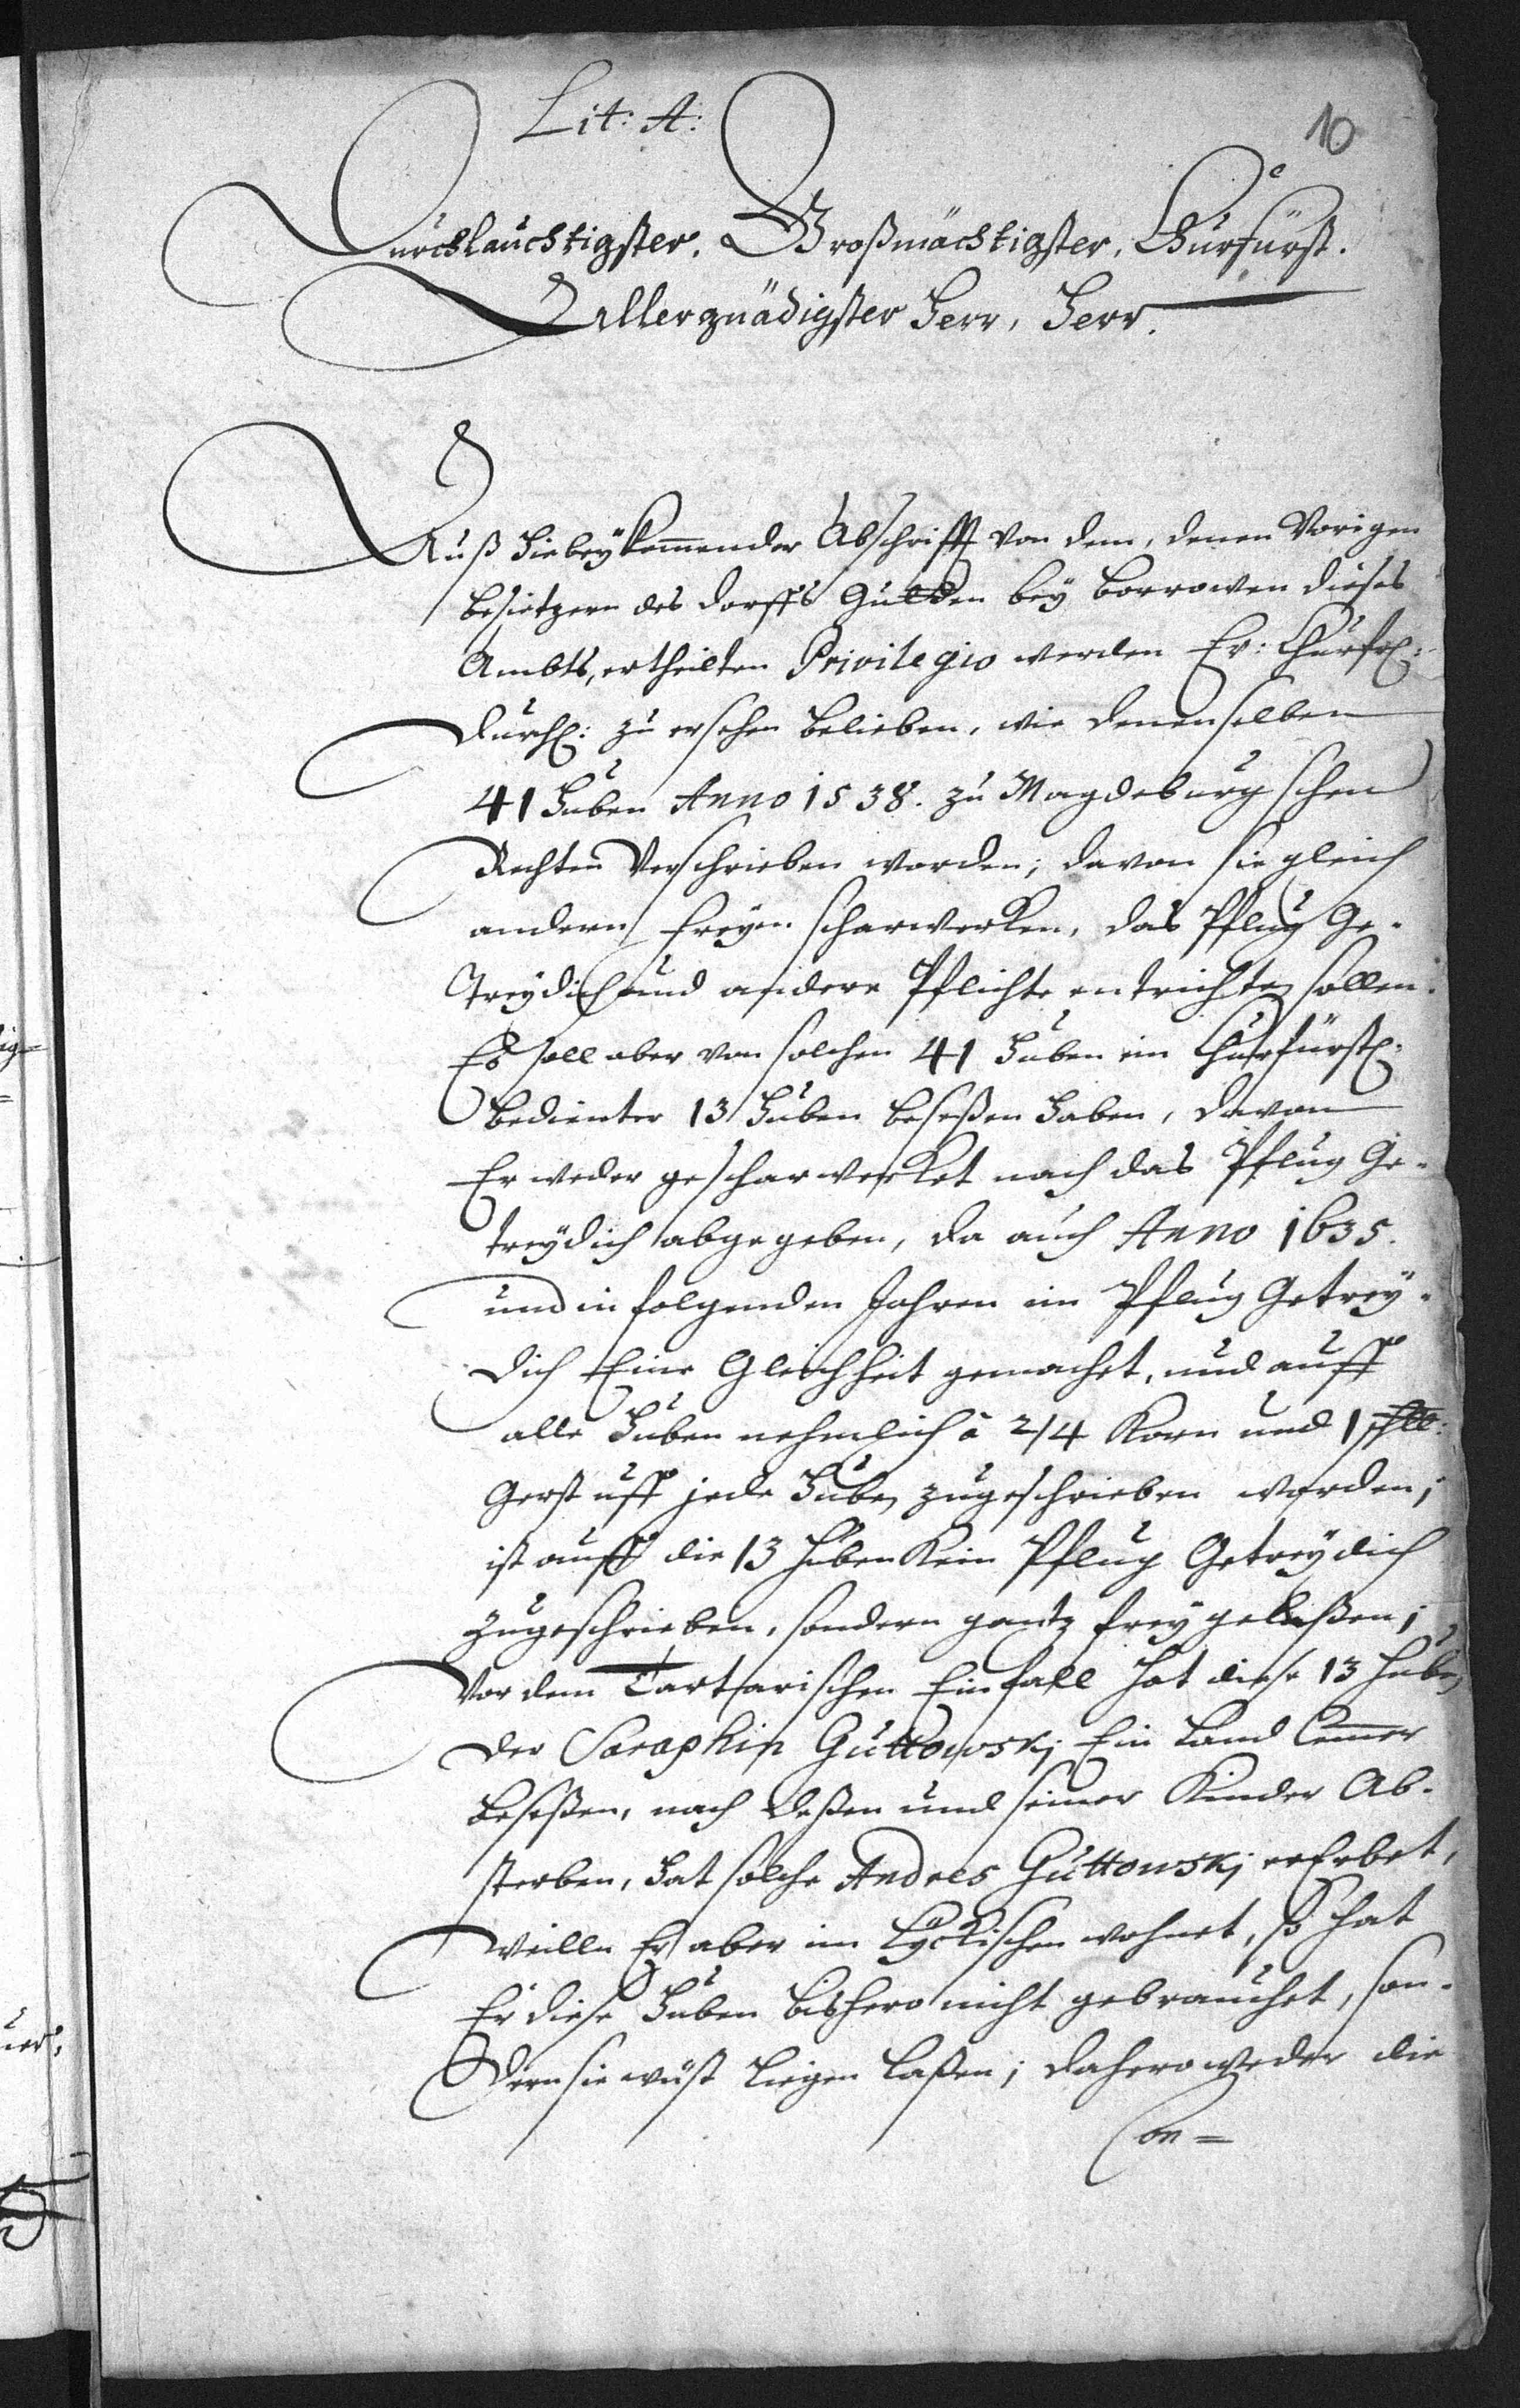 Lit: A:
10
Durchlauchtigster, Großmächtigster, Churfürst.
Allergnädigster Herr, Herr.
Auß hiebeÿkommender Abschrifft von dem, denen Vorigen
besietzern des dorffs Gutten beÿ Borrowen dieses
Ambts, ertheilten Privilegio werden Ew: Churfrl:
Durchl: zu ersehen belieben, wie denenselben
41 Huben Anno 1538. zu Magdeburgschen
Rechten Verschrieben worden; davon sie gleich
andern freÿen scharwerken, das Pflug Ge-
treÿdich und andere Pflichte entrichten sollen.
Es soll aber von solchen 41 Huben ein Churfürstl:
bedienter 13 Huben beseßen haben, davon
Er weder gescharwerket noch das Pflug Ge-
treÿdich abgegeben, da auch Anno 1635.
und in folgenden Jahren im Pflug Getreÿ-
dich Eine Gleichheit gemachet, und auff
alle Huben nehmlich à 2/4 Korn und 1 schll:
Gerst uff jede Huben zugeschrieben worden;
ist auff die 13 Huben Kein Pflug Getreÿdich
zugeschrieben, sondern gantz freÿ gelaßen;
Vor dem Tartarischen Einfall hat diese 13 Huben
der Saraphin Guttowskj Ein Land Cemmer
beseßen, nach deßen und seiner Kinder Ab-
sterben, hat solche Andres Guttowskj ererbet,
weillen Er aber im Lÿckischen wohnet, so hat
Er diese Huben bishero nicht gebrauchet, son-
dern sie wüst liegen laßen; dahero weder die
Con=